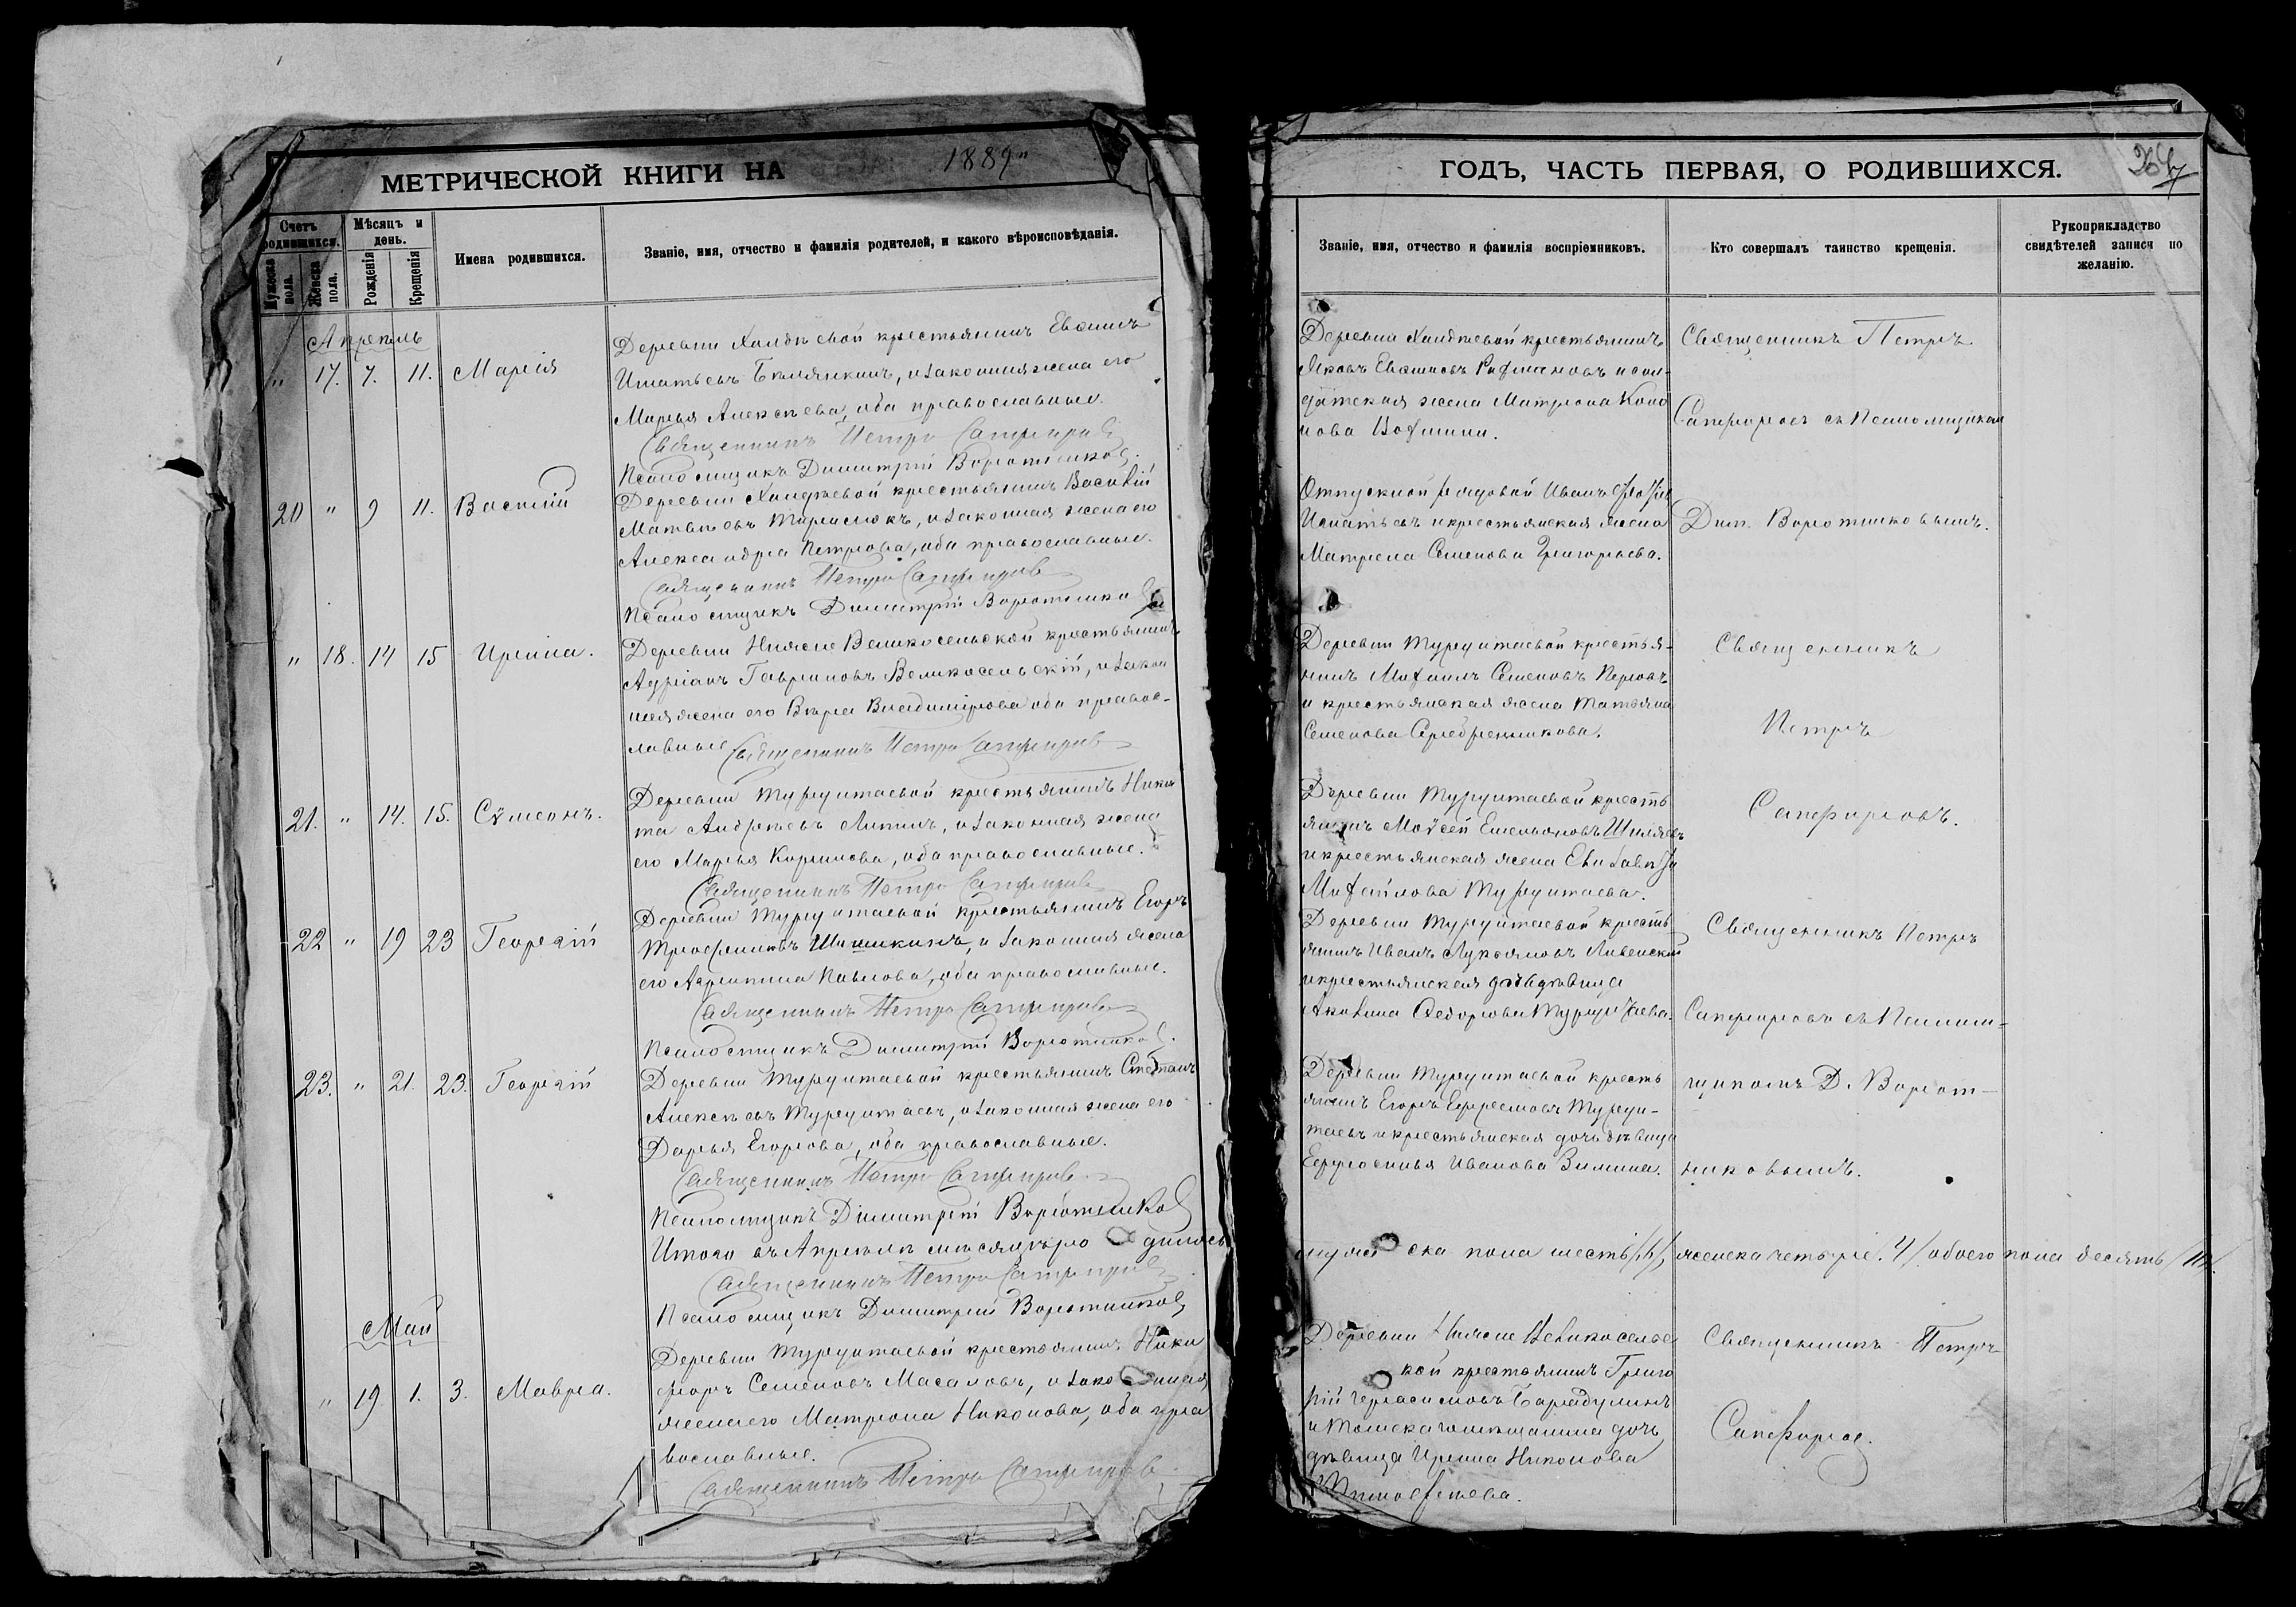 МЕТРИЧЕСКОЙ КНИГИ НА 1889"
Счетъ родившихся.
Мужеска пола.
Женска пола.
Мѣсяцъ и день.
Рожденія
Крещенія
Имена родившихся.
Званіе, имя, отчество и фамилія родителей, и какого вѣроисповѣданія.
Апрель
" 17. 7. 11. Марія
Деревни крестьянинъ
Игнатьевъ и законная жена его
Марья Алексѣева, оба православные.
Священникъ Петръ Сапфировъ
Псаломщикъ Димитрій Воротниковъ.
20 " 9 11. Василій
Деревни крестьянинъ Василій
Матвѣевъ и законная жена его
Александра Петрова, оба православные.
Священникъ Петръ Сапфировъ
Псаломщикъ Димитрій Воротниковъ
" 18. 14 15 Ирина.
Деревни Нижне Великосельской крестьянинъ
Адріанъ Гавриловъ Великосельскій, и закон
ная жена его Вѣра Владимірова оба правос-
лавные Священникъ Петръ Сапфировъ
21. " 14. 15. Сѵмеонъ.
Деревни Турунтаевой крестьянинъ Ники
та Андреевъ и законная жена
его Марья оба православные.
Священникъ Петръ Сапфировъ
22 " 19 23 Георгій
Деревни Турунтаевой крестьянинъ Егоръ
Трофимовъ Шишкинъ, и законная жена
его Агрипина Павлова, оба православные.
Священникъ Петръ Сапфировъ
Псаломщикъ Димитрій Воротниковъ.
23. " 21. 23. Георгій
Деревни Турунтаевой крестьянинъ Стефанъ
Алексѣевъ Турунтаевъ, и законная жена его
Дарья Егорова, оба православные.
Священникъ Петръ Сапфировъ
Псаломщикъ Димитрій Воротниковъ
Итого въ Апрѣлѣ мѣсяцѣ родилось
Священникъ Петръ Сапфировъ
Псаломщикъ Димитрій Воротниковъ
Май
" 19 1. 3. Мавра.
Деревни Турунтаевой крестьянинъ Ники
форъ Семеновъ Масаловъ, и законная
жена его Матрона Никонова, оба пра
вославные.
Священникъ Петръ Сапфировъ
ГОДЪ, ЧАСТЬ ПЕРВАЯ, О РОДИВШИХСЯ.
Званіе, имя, отчество и фамилія воспріемниковъ.
Кто совершалъ таинство крещенія.
Рукоприкладство свидѣтелей записи по желанію.
Деревни крестьянинъ
Яковъ и сол-
датская жена Матрона
нова
Священникъ Петръ
Сапфировъ съ Псаломщикомъ
Отпускной рядовой Иванъ
Игнатьевъ и крестьянская жена
Матрена Семенова Григорьева.
Дим. Воротниковымъ.
Деревни Турунтаевой крестья-
нинъ Михаилъ Семеновъ
и крестьянская жена Татьяна
Семенова Серебренникова.
Священникъ
Петръ
Деревни Турунтаевой кресть
янинъ Моѵсей Емельяновъ
и крестьянская жена Елизавета
Михайлова Турунтаева.
Сапфировъ.
Деревни Турунтаевой кресть
янинъ Иванъ Лукьяновъ
и крестьянская дочь дѣвица
Акилина Федорова Турунтаева.
Священникъ Петръ
Сапфировъ съ Псалом-
Деревни Турунтаевой кресть
янинъ Егоръ Ефремовъ Турун-
таевъ и крестьянская дочь дѣвица
Ефросинья Иванова Зимина.
щикомъ Д. Ворот-
никовымъ.
мужеска пола шесть /6/, женска четыре. 4/ обоего пола десять /10/.
Деревни Нижне Великосельс
кой крестьянинъ Григо
рій Герасимовъ
и дочь
дѣвица Ирина Никонова
Тимофеева.
Священникъ Петръ
Сапфировъ.